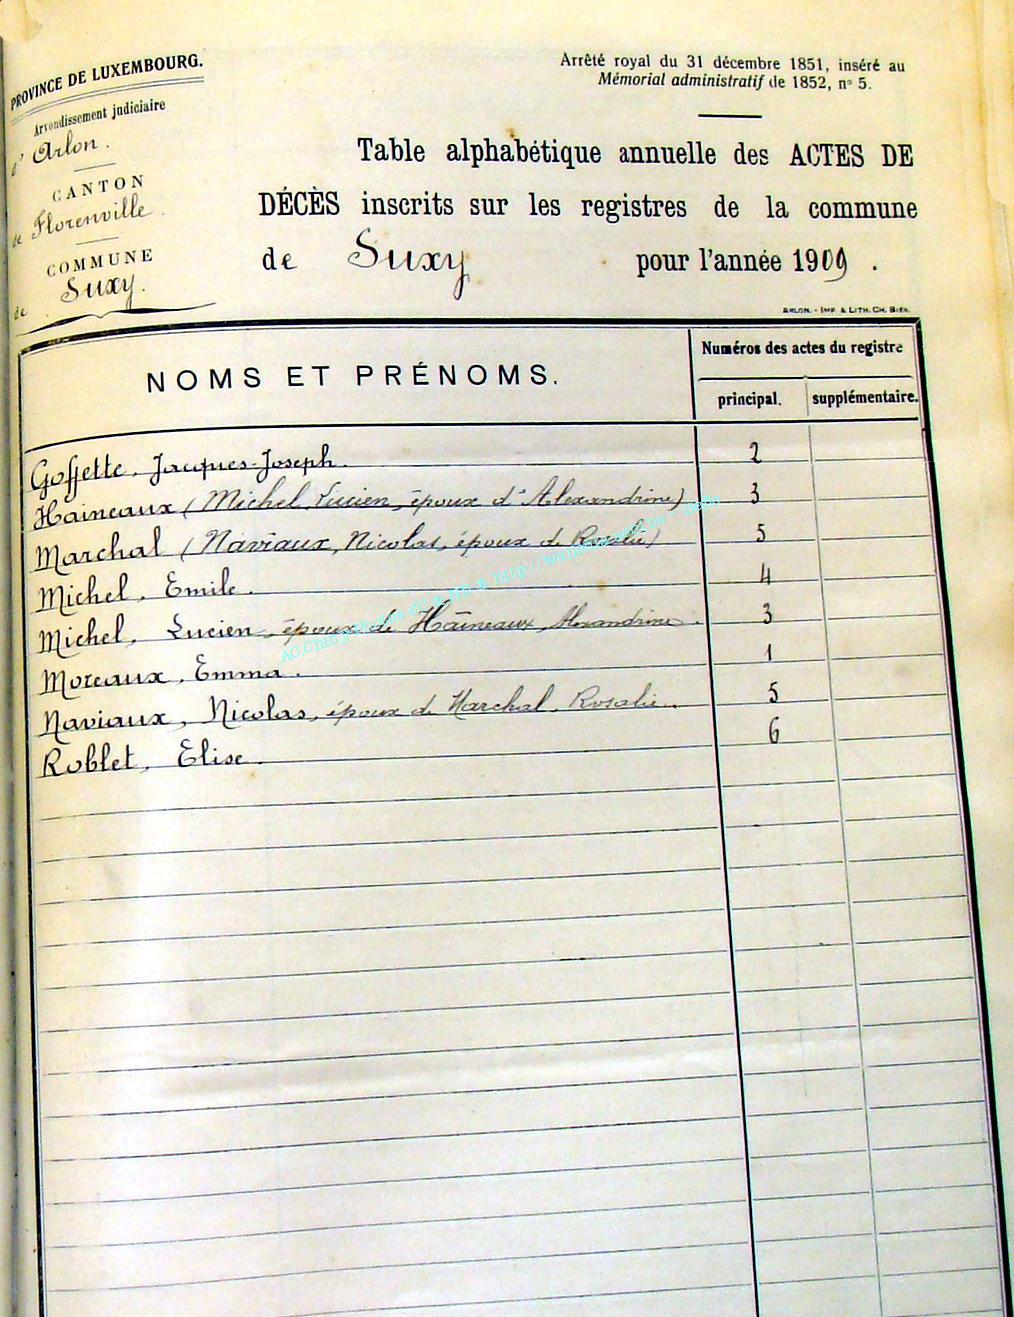 PROVINCE DE LUXEMBOURG.
Arrondissement judiciaire
d'Arlon.
CANTON
de Florenville.
COMMUNE
de Suxy.
Arrêté royal du 31 décembre 1851, inséré au
Mémorial administratif de 1852, n° 5.
Table alphabétique annuelle des ACTES DE
DÉCÈS inscrits sur les registres de la commune
de Suxy pour l'année 1909.
ARLON. - IMP. & LITH. CH. BIER.
NOMS ET PRÉNOMS.
Numéros des actes du registre
principal. supplémentaire.
Goffette, Jacques-Joseph. 2
Haineaux (Michel, Lucien, époux d'Alexandrine) 3
Marchal (Naviaux, Nicolas, époux de Rosalie) 5
Michel, Emile. 4
Michel, Lucien, époux de Haineaux, Alexandrine. 3
Moreaux, Emma. 1
Naviaux, Nicolas, époux de Marchal, Rosalie. 5
Roblet, Elise. 6